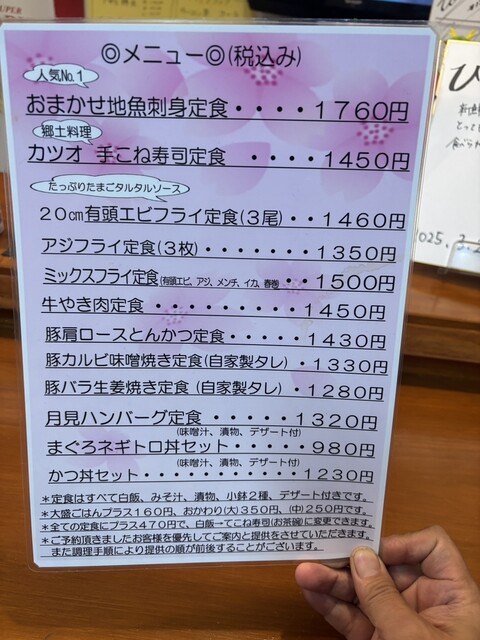 ◎メニュー◎(税込み)
人気No.1
おまかせ地魚刺身定食・・・・1760円
郷土料理
カツオ 手こね寿司定食 ・・・・1450円
たっぷりたまごタルタルソース
20㎝有頭エビフライ定食(3尾)・・1460円
アジフライ定食(3枚)・・・・・・・1350円
ミックスフライ定食(有頭エビ、アジ、メンチ、イカ、春巻・・1500円
牛やき肉定食・・・・・・・・・1450円
豚肩ロースとんかつ定食・・・・1430円
豚カルビ味噌焼き定食(自家製タレ)・1330円
豚バラ生姜焼き定食(自家製タレ)・1280円
月見ハンバーグ定食・・・・・1320円
(味噌汁、漬物、デザート付)
まぐろネギトロ丼セット・・・・980円
(味噌汁、漬物、デザート付)
かつ丼セット・・・・・・・・・・1230円
*定食はすべて白飯、みそ汁、漬物、小鉢2種、デザート付きです。
*大盛ごはんプラス160円、おかわり(大)350円、(中)250円です。
*全ての定食にプラス470円で、白飯→てこね寿司(お茶碗)に変更できます。
*ご予約頂きましたお客様を優先してご案内と提供をさせていただきます。
また調理手順により提供の順が前後することがございます。